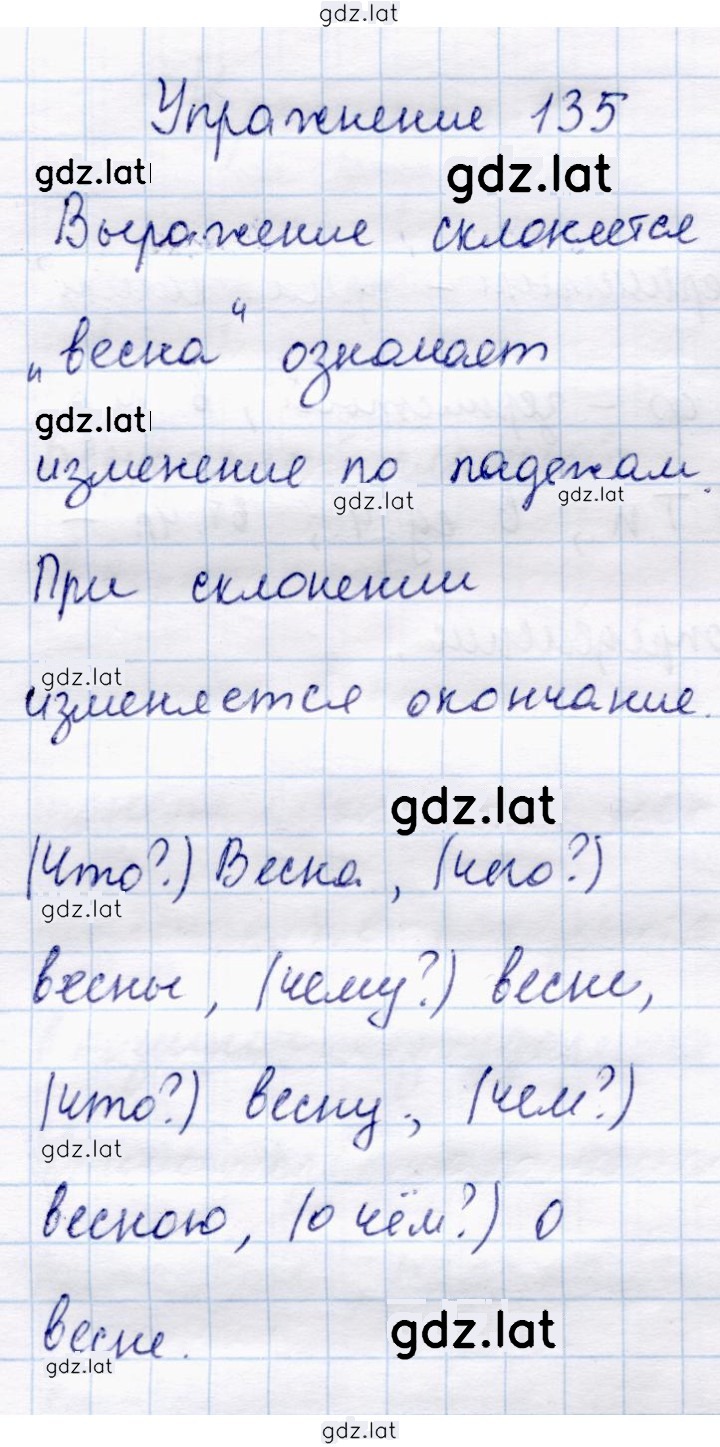 gdz.lat
Упражнение 135
gdz.lat gdz.lat
Выражение склоняется
„весна“ означает
gdz.lat
изменение по падежам.
gdz.lat gdz.lat
При склонении
gdz.lat
изменяется окончание.
gdz.lat
(Что?) Весна, (чего?)
gdz.lat
весны, (чему?) весне,
(что?) весну, (чем?)
gdz.lat
весною, (о чём?) о
весне. gdz.lat
gdz.lat
gdz.lat